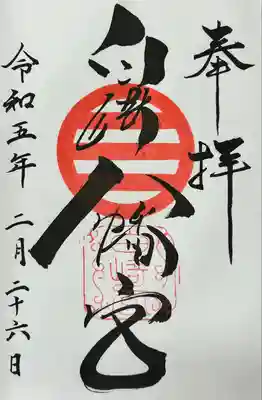 奉拝
八幡宮
令和五年 二月 二十六日